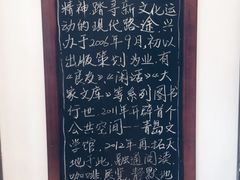 精神踏寻新文化运
动的现代路途,兴
办于2006年9月,初以
出版策划为业,有
《良友》《闲话》《大
家文库》等系列图书
行世。2011年开辟首个
公共空间——青岛文
学馆,2012年再拓天
地于此,融通阅读、
咖啡、展览,静默地